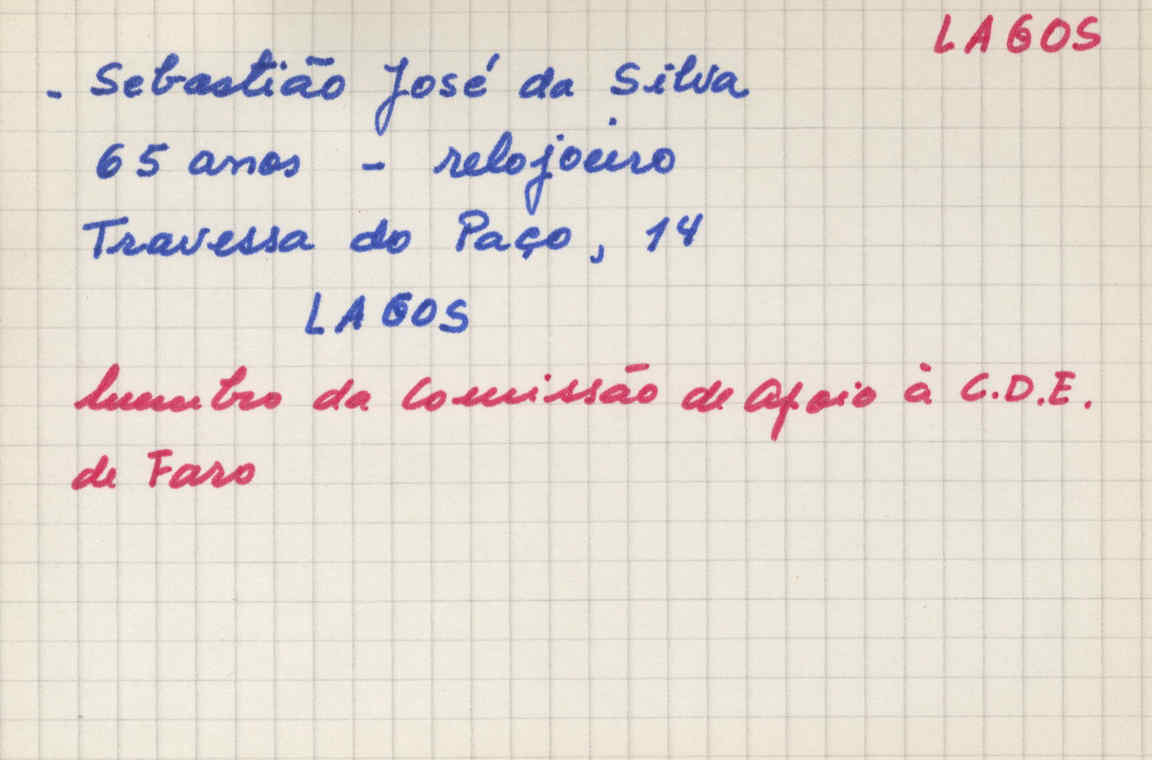 LAGOS
- Sebastião José da Silva
65 anos - relojoeiro
Travessa do Paço, 14
LAGOS
Membro da Comissão de Apoio à C.D.E.
de Faro